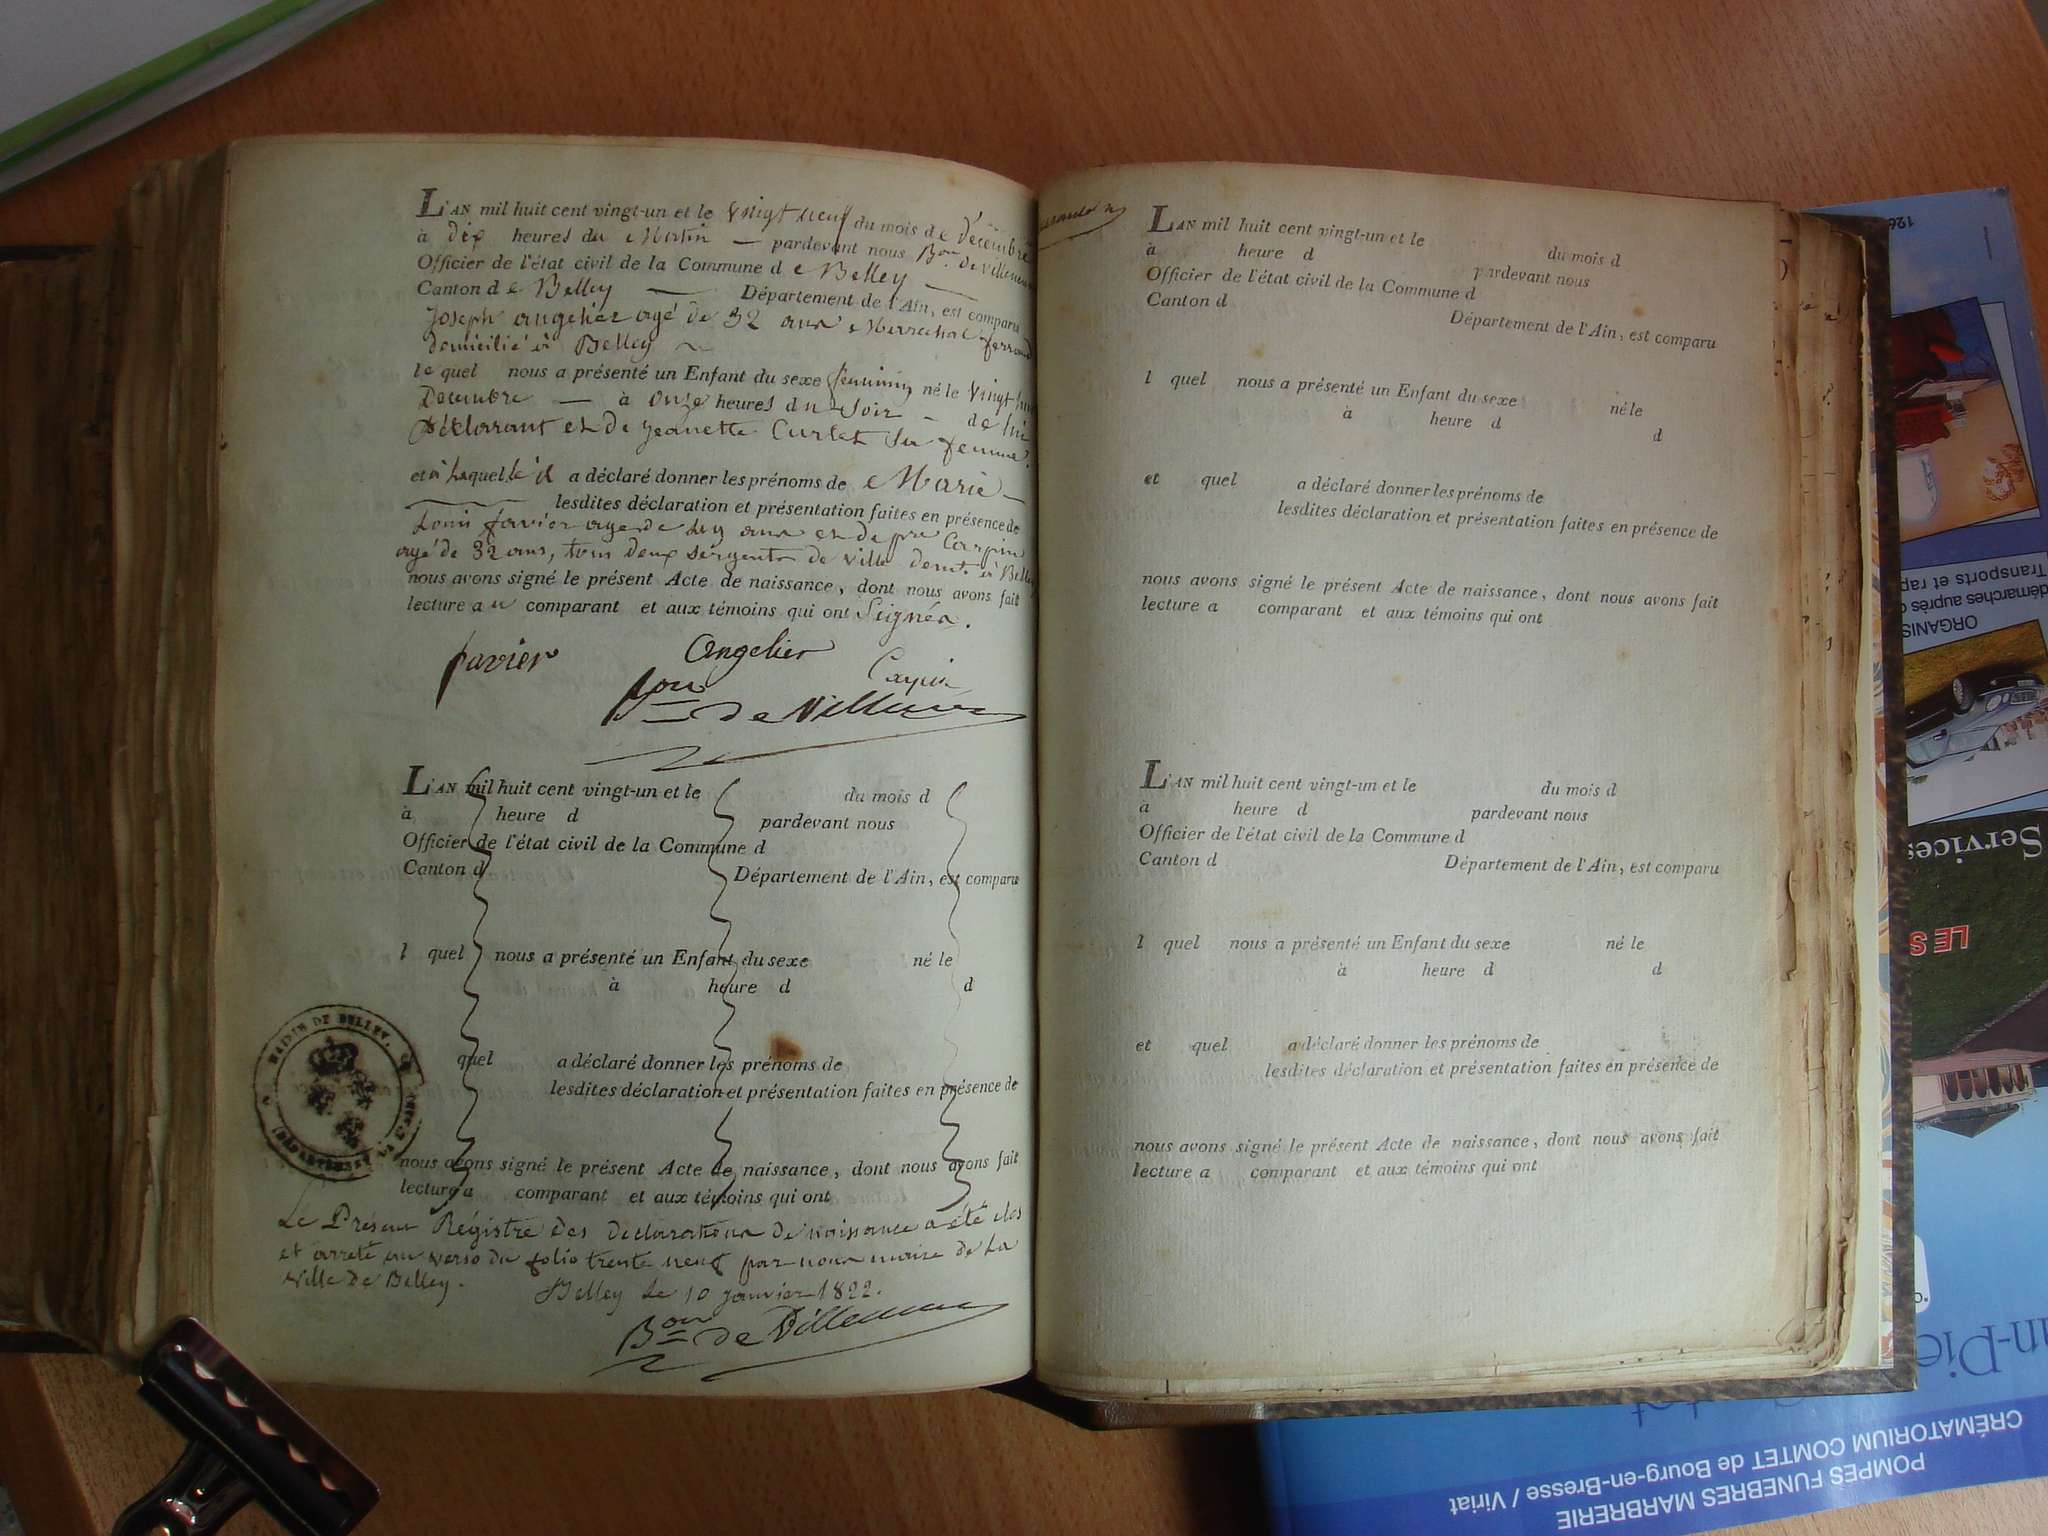 L'AN mil huit cent vingt-un et le vingt neuf du mois de Décembre
à dix heures du Matin — pardevant nous Bon de Villeneu
Officier de l'état civil de la Commune de Belley —
Canton de Belley — Département de l'Ain, est comparu
Joseph angelier agé de 32 ans Marrechal ferrand
domicilié à Belley
le quel nous a présenté un Enfant du sexe féminin né le Vingt
Decembre — à onze heures du Soir — de lui
Déclarant et de jeanette Curtet Sa femme.
et à laquelle il a déclaré donner les prénoms de Marie —
lesdites déclaration et présentation faites en présence de
Louis favier age de ans et de pre Carpin
agé de 32 ans, tous deux sergents de ville domt. à Belley
nous avons signé le présent Acte de naissance, dont nous avons fait
lecture au comparant et aux témoins qui ont Seignés.
favier angelier Carpin
Bon de Villeneuve
L'AN mil huit cent vingt-un et le du mois d
à heure d pardevant nous
Officier de l'état civil de la Commune d
Canton d Département de l'Ain, est comparu
l quel nous a présenté un Enfant du sexe né le
à heure d d
quel a déclaré donner les prénoms de
lesdites déclaration et présentation faites en présence de
nous avons signé le présent Acte de naissance, dont nous avons fait
lecture a comparant et aux témoins qui ont
MAIRIE DE BELLEY.
Le Présent Régistre des déclarations de naissance a été clos
et arreté au verso du folio trente neuf par nous maire de la
Ville de Belley.
Belley Le 10 janvier 1822.
Bon de Villeneuve
L'AN mil huit cent vingt-un et le du mois d
à heure d pardevant nous
Officier de l'état civil de la Commune d
Canton d Département de l'Ain, est comparu
l quel nous a présenté un Enfant du sexe né le
à heure d d
et quel a déclaré donner les prénoms de
lesdites déclaration et présentation faites en présence de
nous avons signé le présent Acte de naissance, dont nous avons fait
lecture a comparant et aux témoins qui ont
L'AN mil huit cent vingt-un et le du mois d
à heure d pardevant nous
Officier de l'état civil de la Commune d
Canton d Département de l'Ain, est comparu
l quel nous a présenté un Enfant du sexe né le
à heure d d
et quel a déclaré donner les prénoms de
lesdites déclaration et présentation faites en présence de
nous avons signé le présent Acte de naissance, dont nous avons fait
lecture a comparant et aux témoins qui ont
POMPES FUNEBRES MARBRERIE
CRÉMATORIUM COMTET de Bourg-en-Bresse / Viriat
n-Pie
LE S
Services
ORGANIS
démarches auprès
Transports et rap